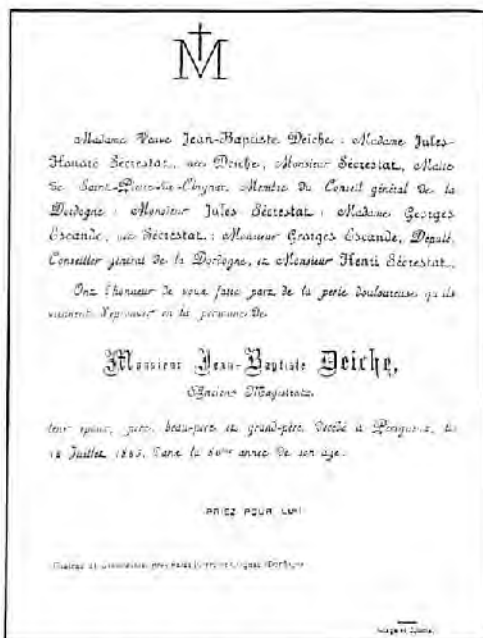 M
Madame Veuve Jean-Baptiste Deiche ; Madame Jules-
Honoré Sécrestat, née Deiche, Monsieur Sécrestat, Maire
de Saint-Pierre-de-Chignac, Membre du Conseil général de la
Dordogne ; Monsieur Jules Sécrestat ; Madame Georges
Escande, née Sécrestat ; Monsieur Georges Escande, Député,
Conseiller général de la Dordogne, et Monsieur Henri Sécrestat,
Ont l'honneur de vous faire part de la perte douloureuse qu'ils
viennent d'éprouver en la personne de
Monsieur Jean-Baptiste Deiche,
Ancien Magistrat,
leur époux, père, beau-père et grand-père, décédé à Périgueux, le
18 Juillet 1885, dans la année de son âge.
PRIEZ POUR LUI